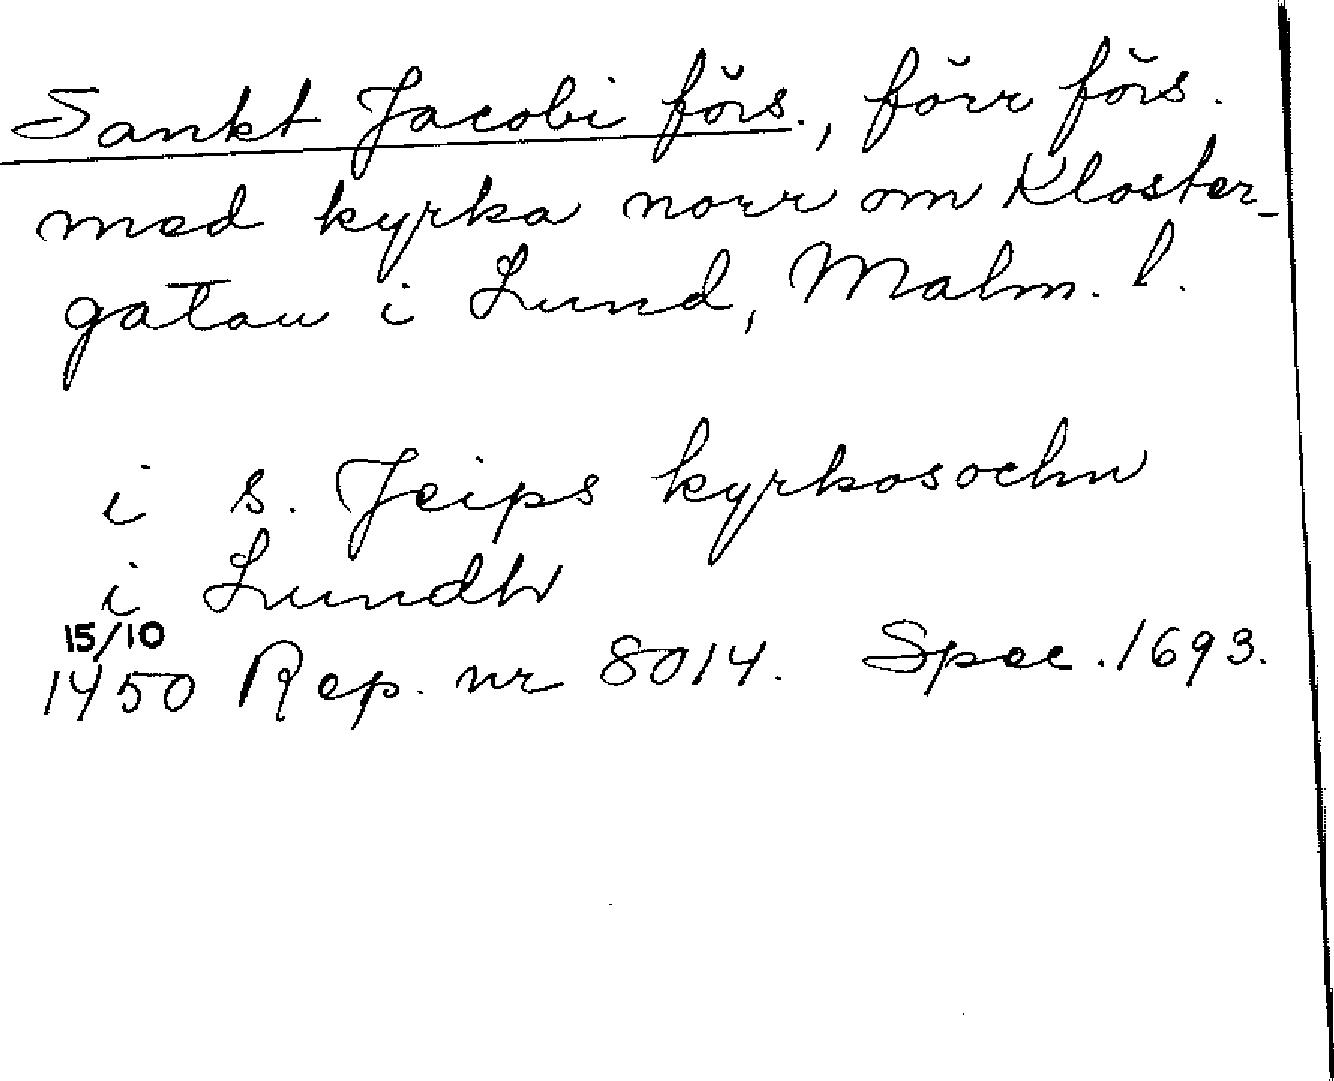 Sankt Jacobi förs., förr förs.
med kyrka norr om Kloster-
gatan i Lund, Malm. l.
i s. Jeips kyrkosochn
i Lundh
15/10
1450 Rep. nr 8014. Spec. 1693.